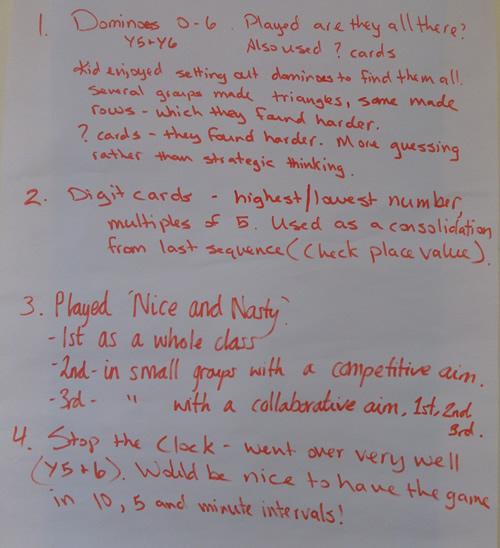 1. Dominoes 0-6. Played are they all there?
Y5+Y6 Also used ? cards
Kid enjoyed setting out dominoes to find them all.
Several groups made triangles, some made
rows - which they found harder.
? cards - they found harder. More guessing
rather than strategic thinking.
2. Digit cards - highest/lowest number,
multiples of 5. Used as a consolidation
from last sequence (Check place value).
3. Played 'Nice and Nasty'.
- 1st as a whole class
- 2nd - in small groups with a competitive aim.
- 3rd - " with a collaborative aim, 1st, 2nd
3rd.
4. Stop the Clock - went over very well
(Y5+6). Would be nice to have the game
in 10, 5 and minute intervals!